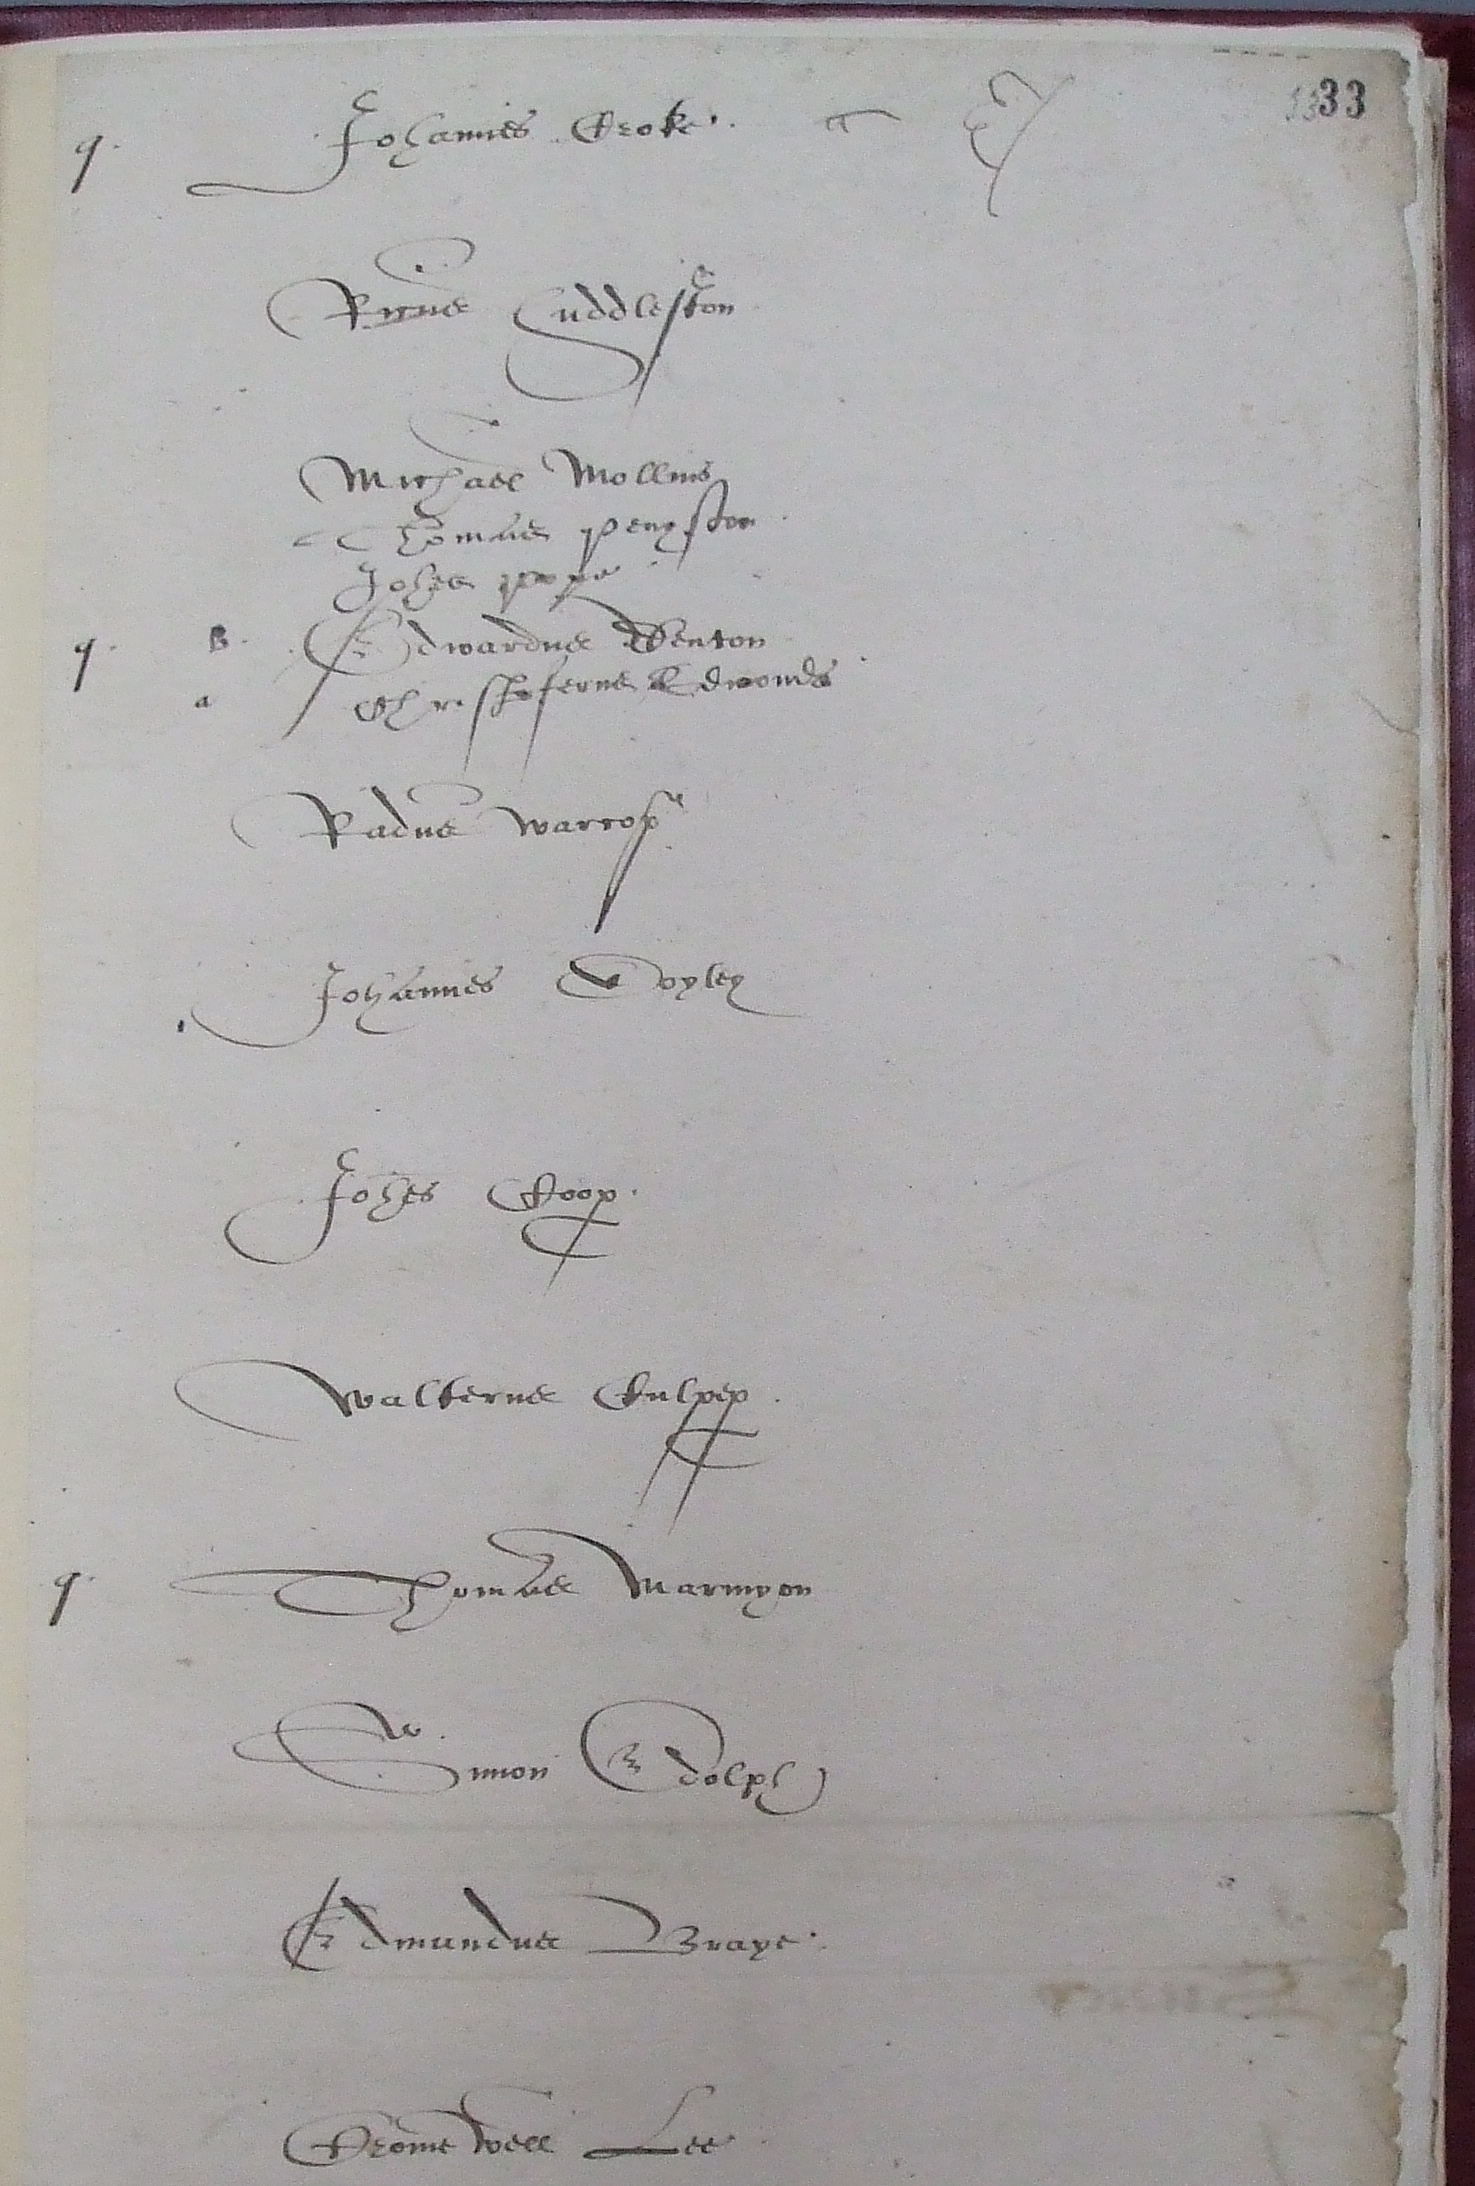 33
q. Johannes Croke.
Ricus Huddleston
Michael Mollins
Thomas penyston
Johes pope
q. B. Edwardus Denton
a Christoferus Edmonds
Radus Warcop
Johannes Doyley
Johes Coop.
Walterus Culpep.
q. Thomas Marmyon
Simon Edolph
Edmundus Braye.
Cromewell Lee